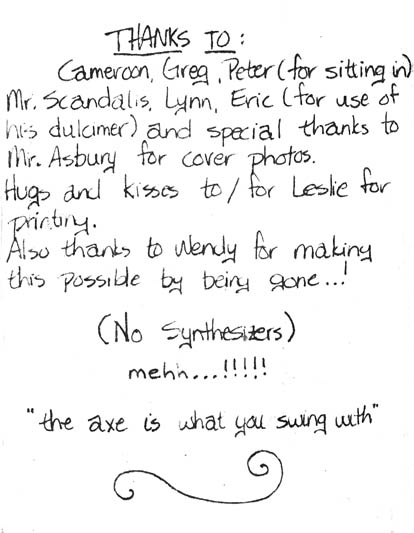 THANKS TO:
Cameroon, Greg, Peter (for sitting in)
Mr. Scandalis, Lynn, Eric (for use of
his dulcimer) and special thanks to
Mr. Asbury for cover photos.
Hugs and kisses to/for Leslie for
printing.
Also thanks to Wendy for making
this possible by being gone...!
(No Synthesizers)
mehh...!!!!!
"the axe is what you swing with"